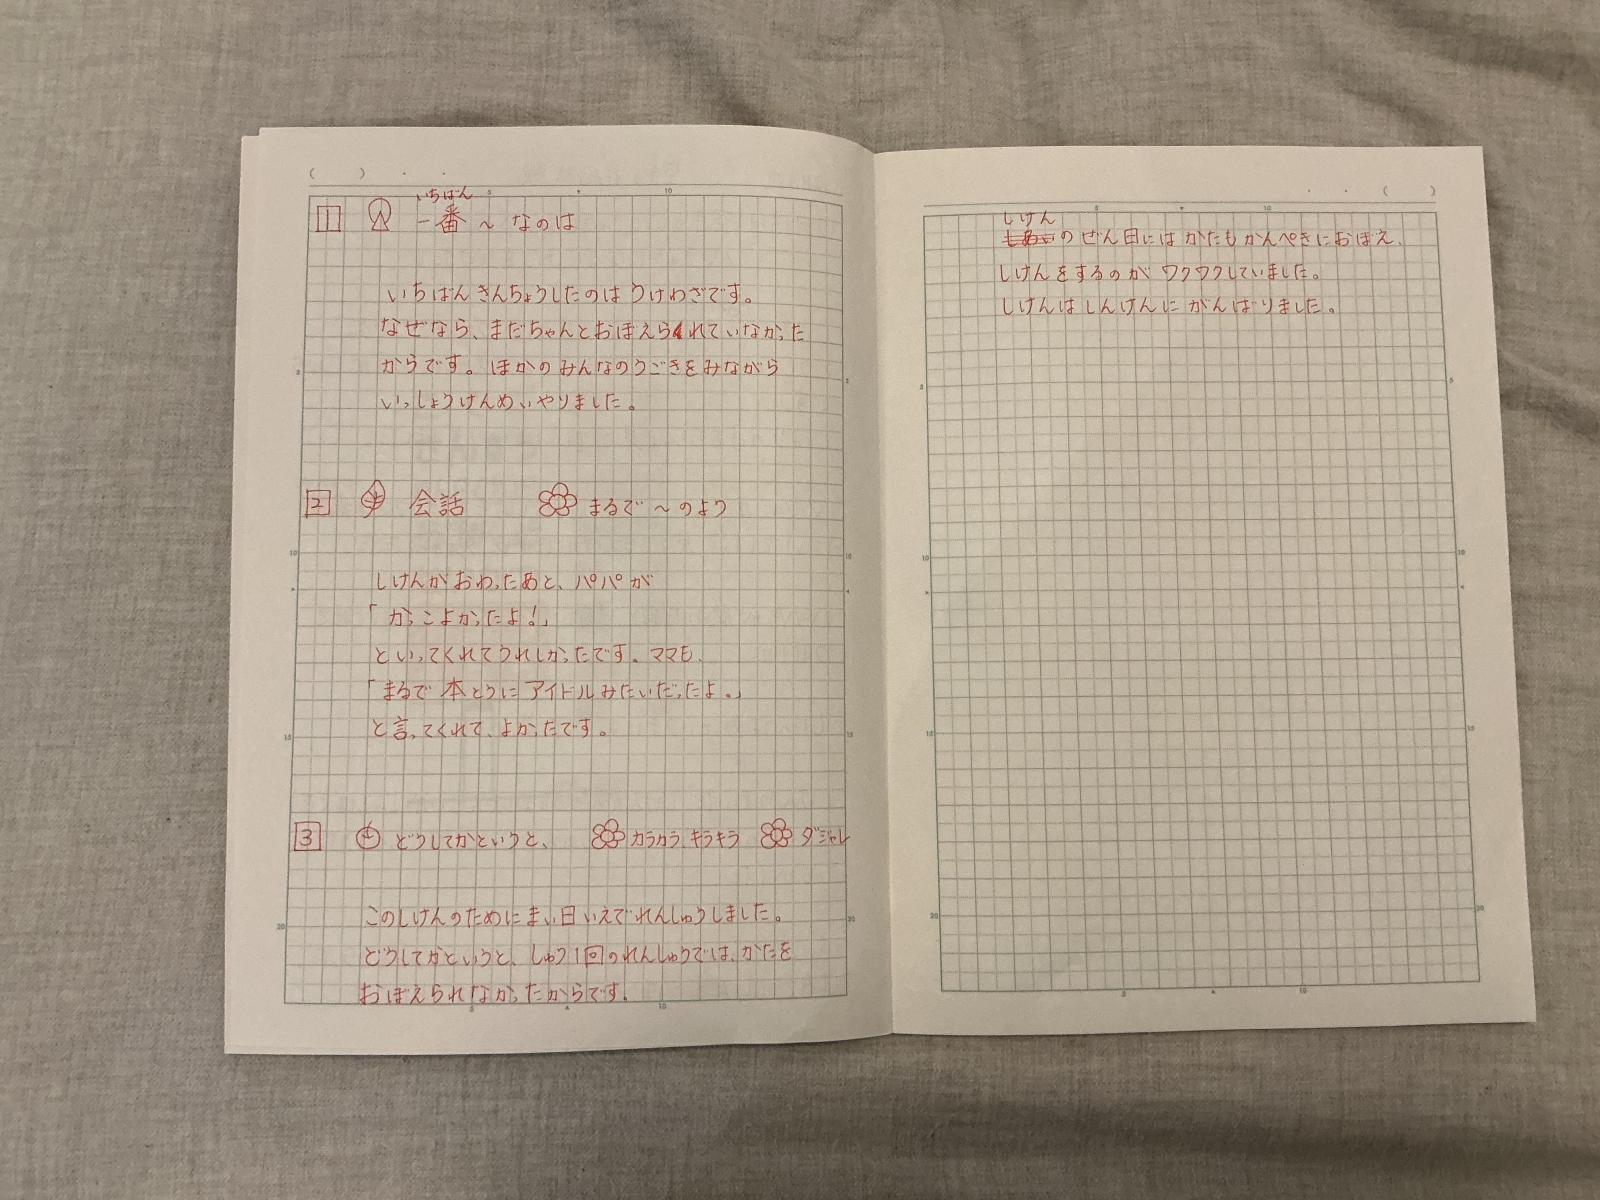 ( ) ・ ・
いちばん
1 一番 ~ なのは
いちばん きんちょうしたのは うけわざです。
なぜなら、まだちゃんとおぼえられていなかった
からです。ほかのみんなのうごきをみながら
いっしょうけんめいやりました。
2 会話 まるで ~ のよう
しけんがおわったあと、パパが
「かっこよかったよ!」
といってくれてうれしかったです。ママも、
「まるで 本とうに アイドルみたいだったよ。」
と言ってくれて、よかったです。
3 どうしてかというと、 カラカラ キラキラ ダジャレ
このしけんのためにまい日いえでれんしゅうしました。
どうしてかというと、しゅう1回のれんしゅうでは、かたを
おぼえられなかったからです。
・ ・ ( )
しけん
の ぜん日には かたもかんぺきにおぼえ、
しけんをするのが ワクワクしていました。
しけんはしんけんに がんばりました。